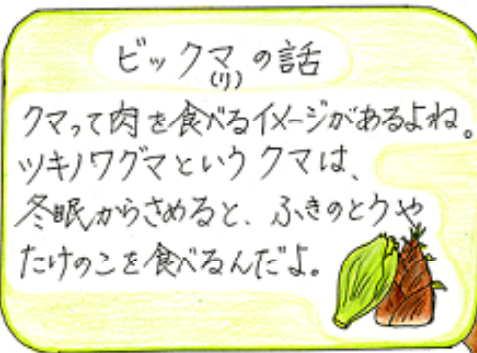 ビックマ(リ)の話
クマって肉を食べるイメージがあるよね。
ツキノワグマというクマは、
冬眠からさめると、ふきのとうや
たけのこを食べるんだよ。